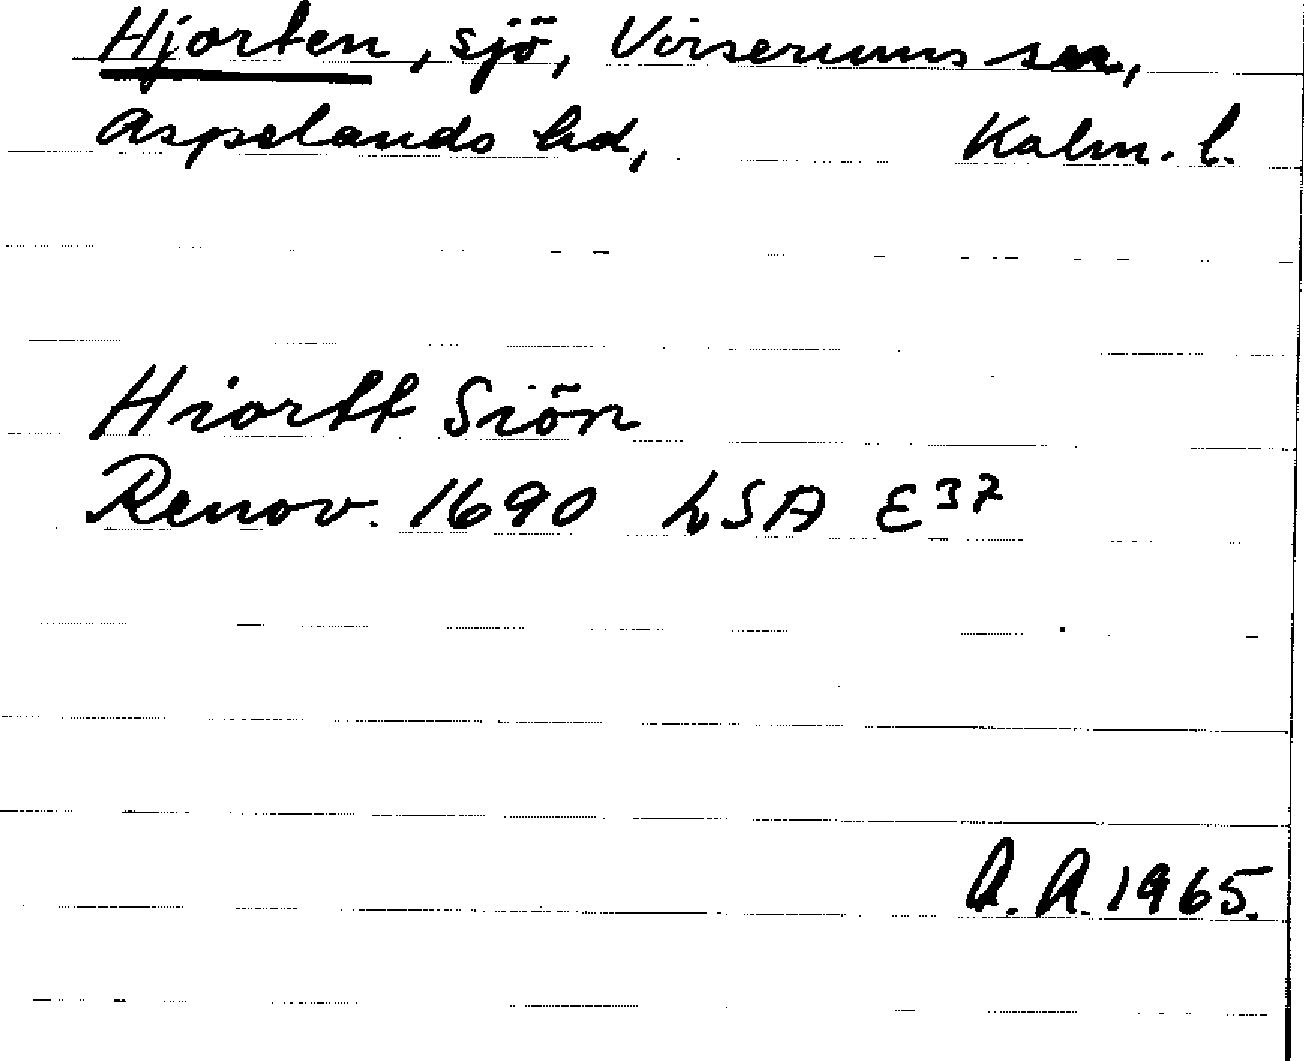 Hjorten, sjö, Virserums sn,
Aspelands hd, Kalm. l.
Hiortt Siön
Renov. 1690 LSA E37
A.A. 1965.